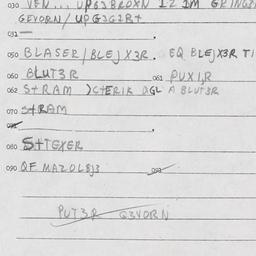 030 VEN... UPG3BROXN 12 1M GRING3
GEVORN/ UPG3G2R+
031
050 BLASER/BLEJX3R. EQ BLEJX3R TI
060 BLUT3R 061 PUX1,R
062 S+RAM )C+ERIK OGL A BLUT3R
070 S+RAM
080 S+TEXER
090 QF MAZOL8J3
PUT3R G3VORN